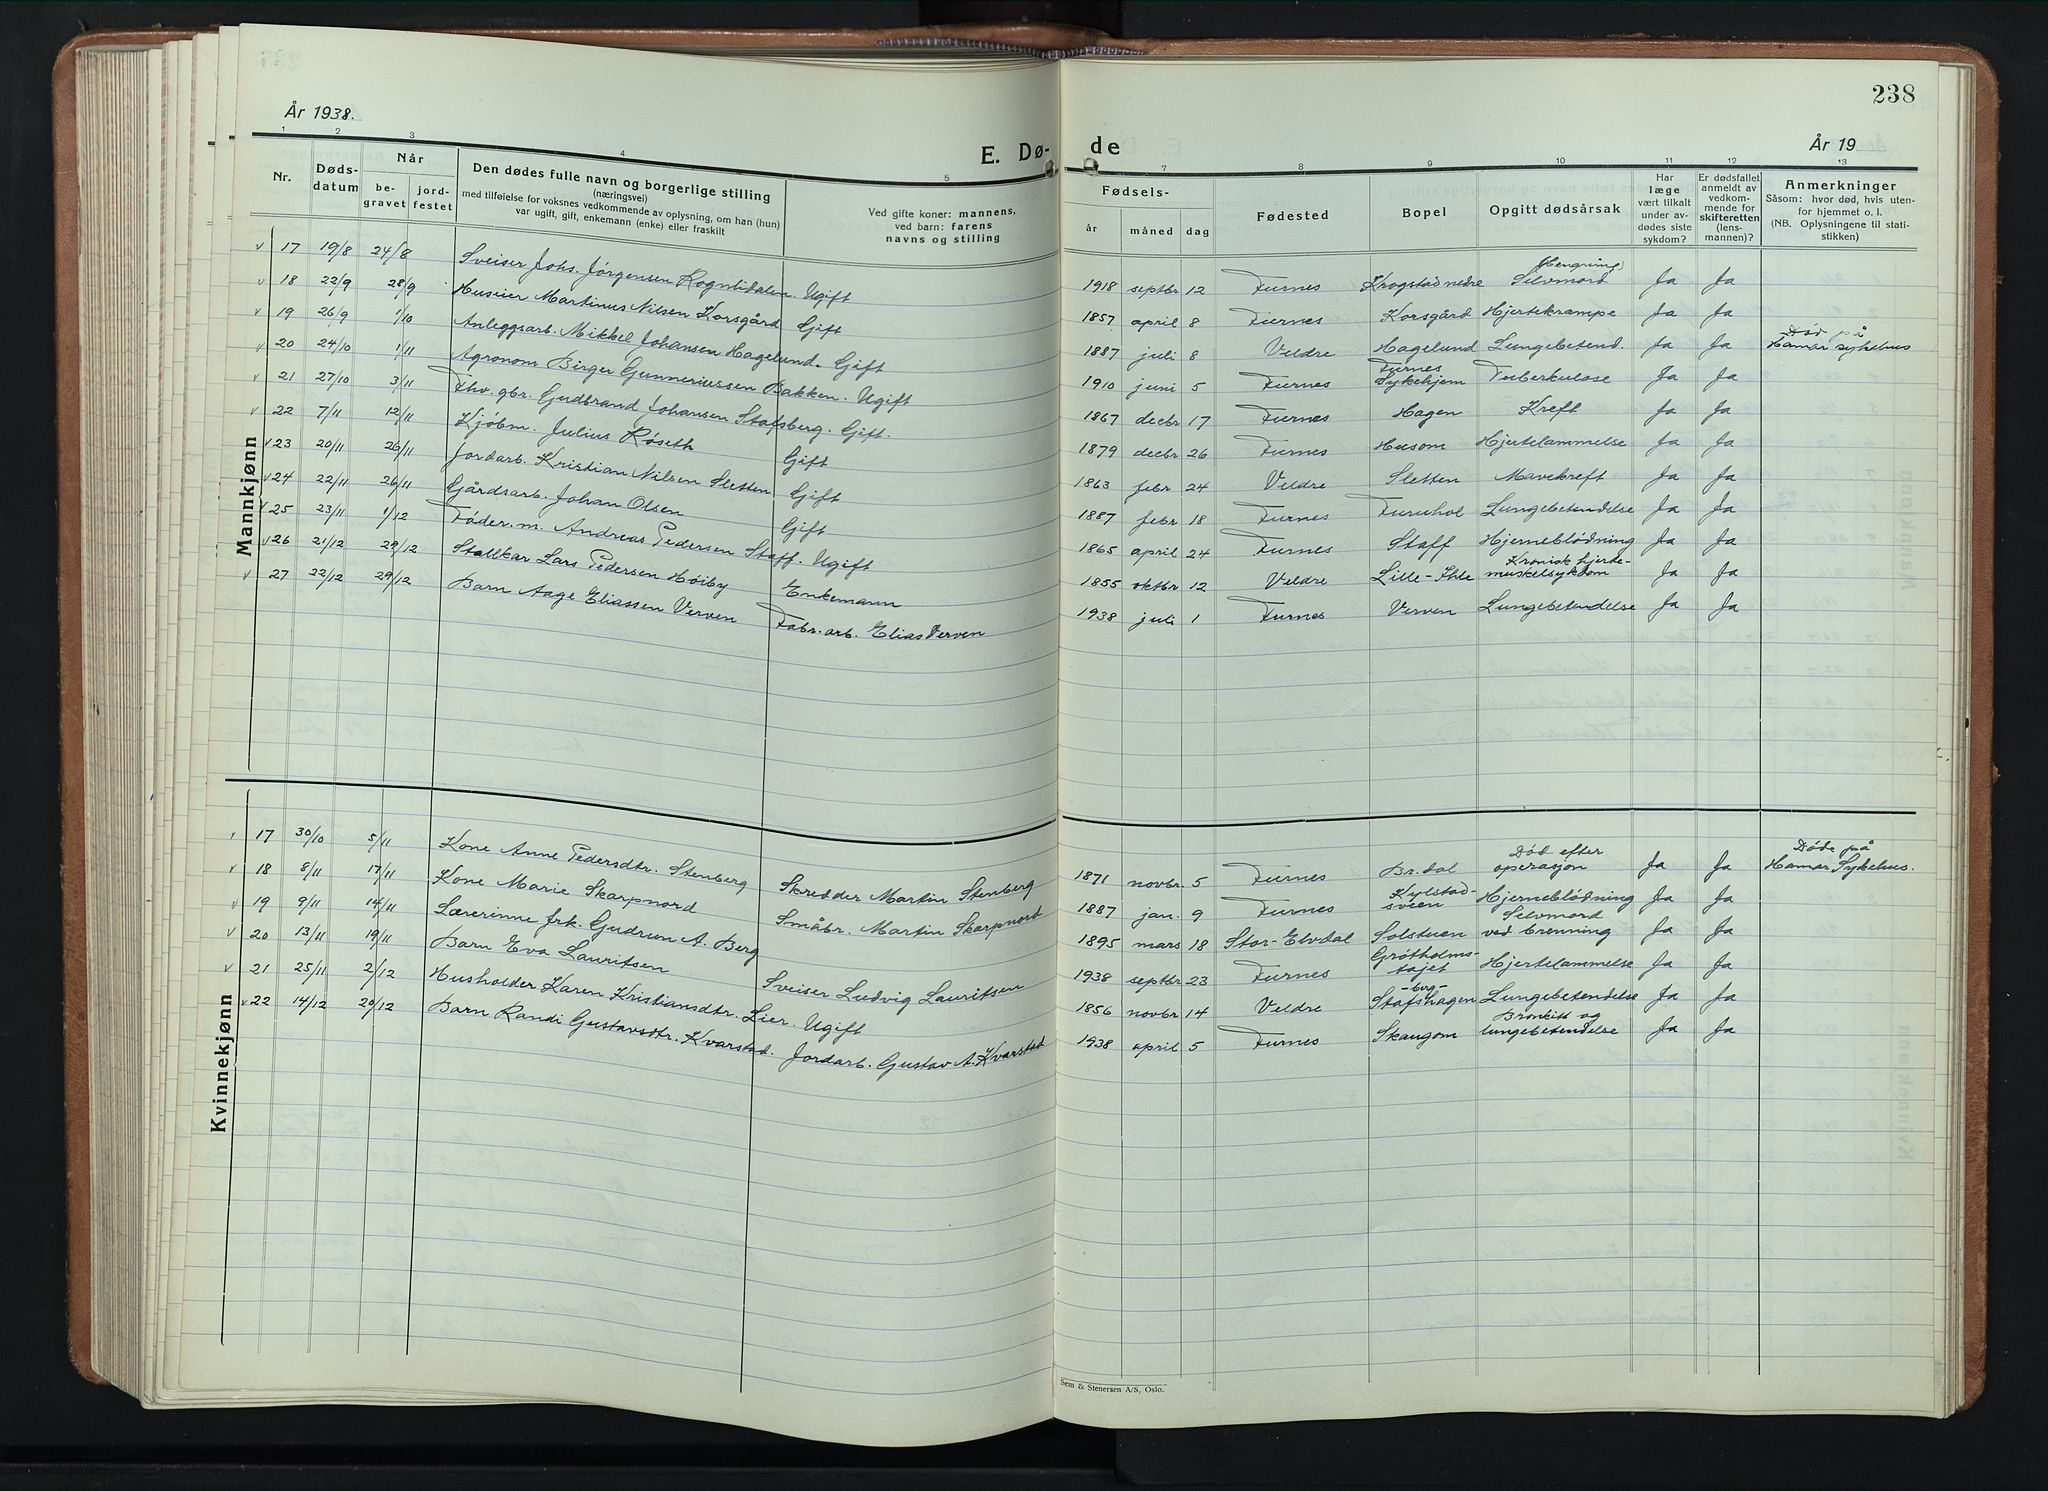 238
År 1938.
År 19
E. Dø-
de
1 2 3 4 5 7 8 9 10 11 12 13
Nr.
Døds-
datum
Når
be-
gravet
jord-
festet
Den dødes fulle navn og borgerlige stilling
(næringsvei)
med tilføielse for voksnes vedkommende av oplysning, om han (hun)
var ugift, gift, enkemann (enke) eller fraskilt
Ved gifte koner: mannens,
ved barn: farens
navns og stilling
Fødsels-
år måned dag
Fødested
Bopel
Opgitt dødsårsak
Har
læge
vært tilkalt
under av-
dødes siste
sykdom?
Er dødsfallet
anmeldt av
vedkom-
mende for
skifteretten
(lens-
mannen)?
Anmerkninger
Såsom: hvor død, hvis uten-
for hjemmet o. l.
(NB. Oplysningene til stati-
stikken)
Mannkjønn
v 17 19/8 24/8 Sveiser Johs. Jörgensen Rognlidalen. Ugift 1918 septbr 12 Furnes Krogstad nedre (Hengning) Selvmord Ja Ja
v 18 22/9 28/9 Huseier Martinus Nilsen Korsgård Gift 1857 april 8 Furnes Korsgård Hjertekrampe Ja Ja
v 19 26/9 1/10 Anleggsarb. Mikkel Johansen Hagelund. Gift 1887 juli 8 Veldre Hagelund Lungebetend. Ja Ja Död på Hamar sykehus
v 20 24/10 1/11 Agronom Birger Gunneriussen Bakken. Ugift 1910 juni 5 Furnes Furnes Sykehjem Tuberkulose Ja Ja
v 21 27/10 3/11 Fhv. gbr. Gudbrand Johansen Stafsberg. Gift. 1867 decbr 17 Furnes Hagen Kreft Ja Ja
v 22 7/11 12/11 Kjöbm. Julius Röseth Gift 1879 decbr 26 Furnes Husom Hjertelammelse Ja Ja
v 23 20/11 26/11 Jordarb. Kristian Nilsen Sletten Gift 1863 febr 24 Veldre Sletten Mavekreft Ja Ja
v 24 22/11 26/11 Gårdsarb. Johan Olsen Gift 1887 febr 18 Furnes Furuhol Lungebetendelse Ja Ja
v 25 23/11 1/12 Föder.m. Andreas Pedersen Staff. Ugift 1865 april 24 Furnes Staff Hjerneblödning Ja Ja
v 26 21/12 29/12 Stallkar Lars Pedersen Höiby Enkemann 1855 oktbr 12 Veldre Lille-Ihle Kronisk hjerte-muskelsykdom Ja Ja
v 27 22/12 29/12 Barn Aage Eliassen Verven Fabr.arb. Elias Verven 1938 juli 1 Furnes Verven Lungebetendelse Ja Ja
Kvinnekjønn
v 17 30/10 5/11 Kone Anne Pedersdtr. Stenberg Skredder Martin Stenberg 1871 novbr. 5 Furnes Br.dal Död efter operasjon Ja Ja Döde på Hamar Sykehus.
v 18 8/11 17/11 Kone Marie Skarpnord Småbr. Martin Skarpnord 1887 jan. 9 Furnes Kylstad-sveen Hjerneblödning Ja Ja
v 19 9/11 14/11 Lærerinne frk. Gudrun A. Berg 1895 mars 18 Stor-Elvdal Solstuen Selvmord ved brenning Ja Ja
v 20 13/11 19/11 Barn Eva Lauritsen Sveiser Ludvig Lauritsen 1938 septbr 23 Furnes Grötholms-tajet Hjertelammelse Ja Ja
v 21 25/11 2/12 Husholder Karen Kristiansdtr. Lier. Ugift 1856 novbr 14 Veldre -berg- Stafshagen Lungebetendelse Ja Ja
v 22 14/12 20/12 Barn Randi Gustavsdtr. Kvarstad. Jordarb. Gustav A. Kvarstad 1938 april 5 Furnes Skaugom Bronkitt og lungebetendelse Ja Ja
Sem & Stenersen A/S, Oslo.